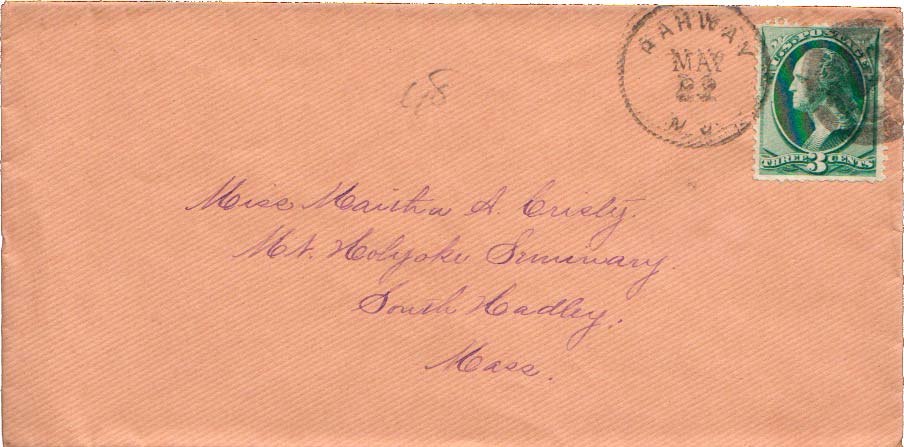 RAHWAY
MAY
22
N.J.
U.S. POSTAGE
THREE 3 CENTS
68
Miss Martha A. Cristy.
Mt. Holyoke Seminary.
South Hadley.
Mass.